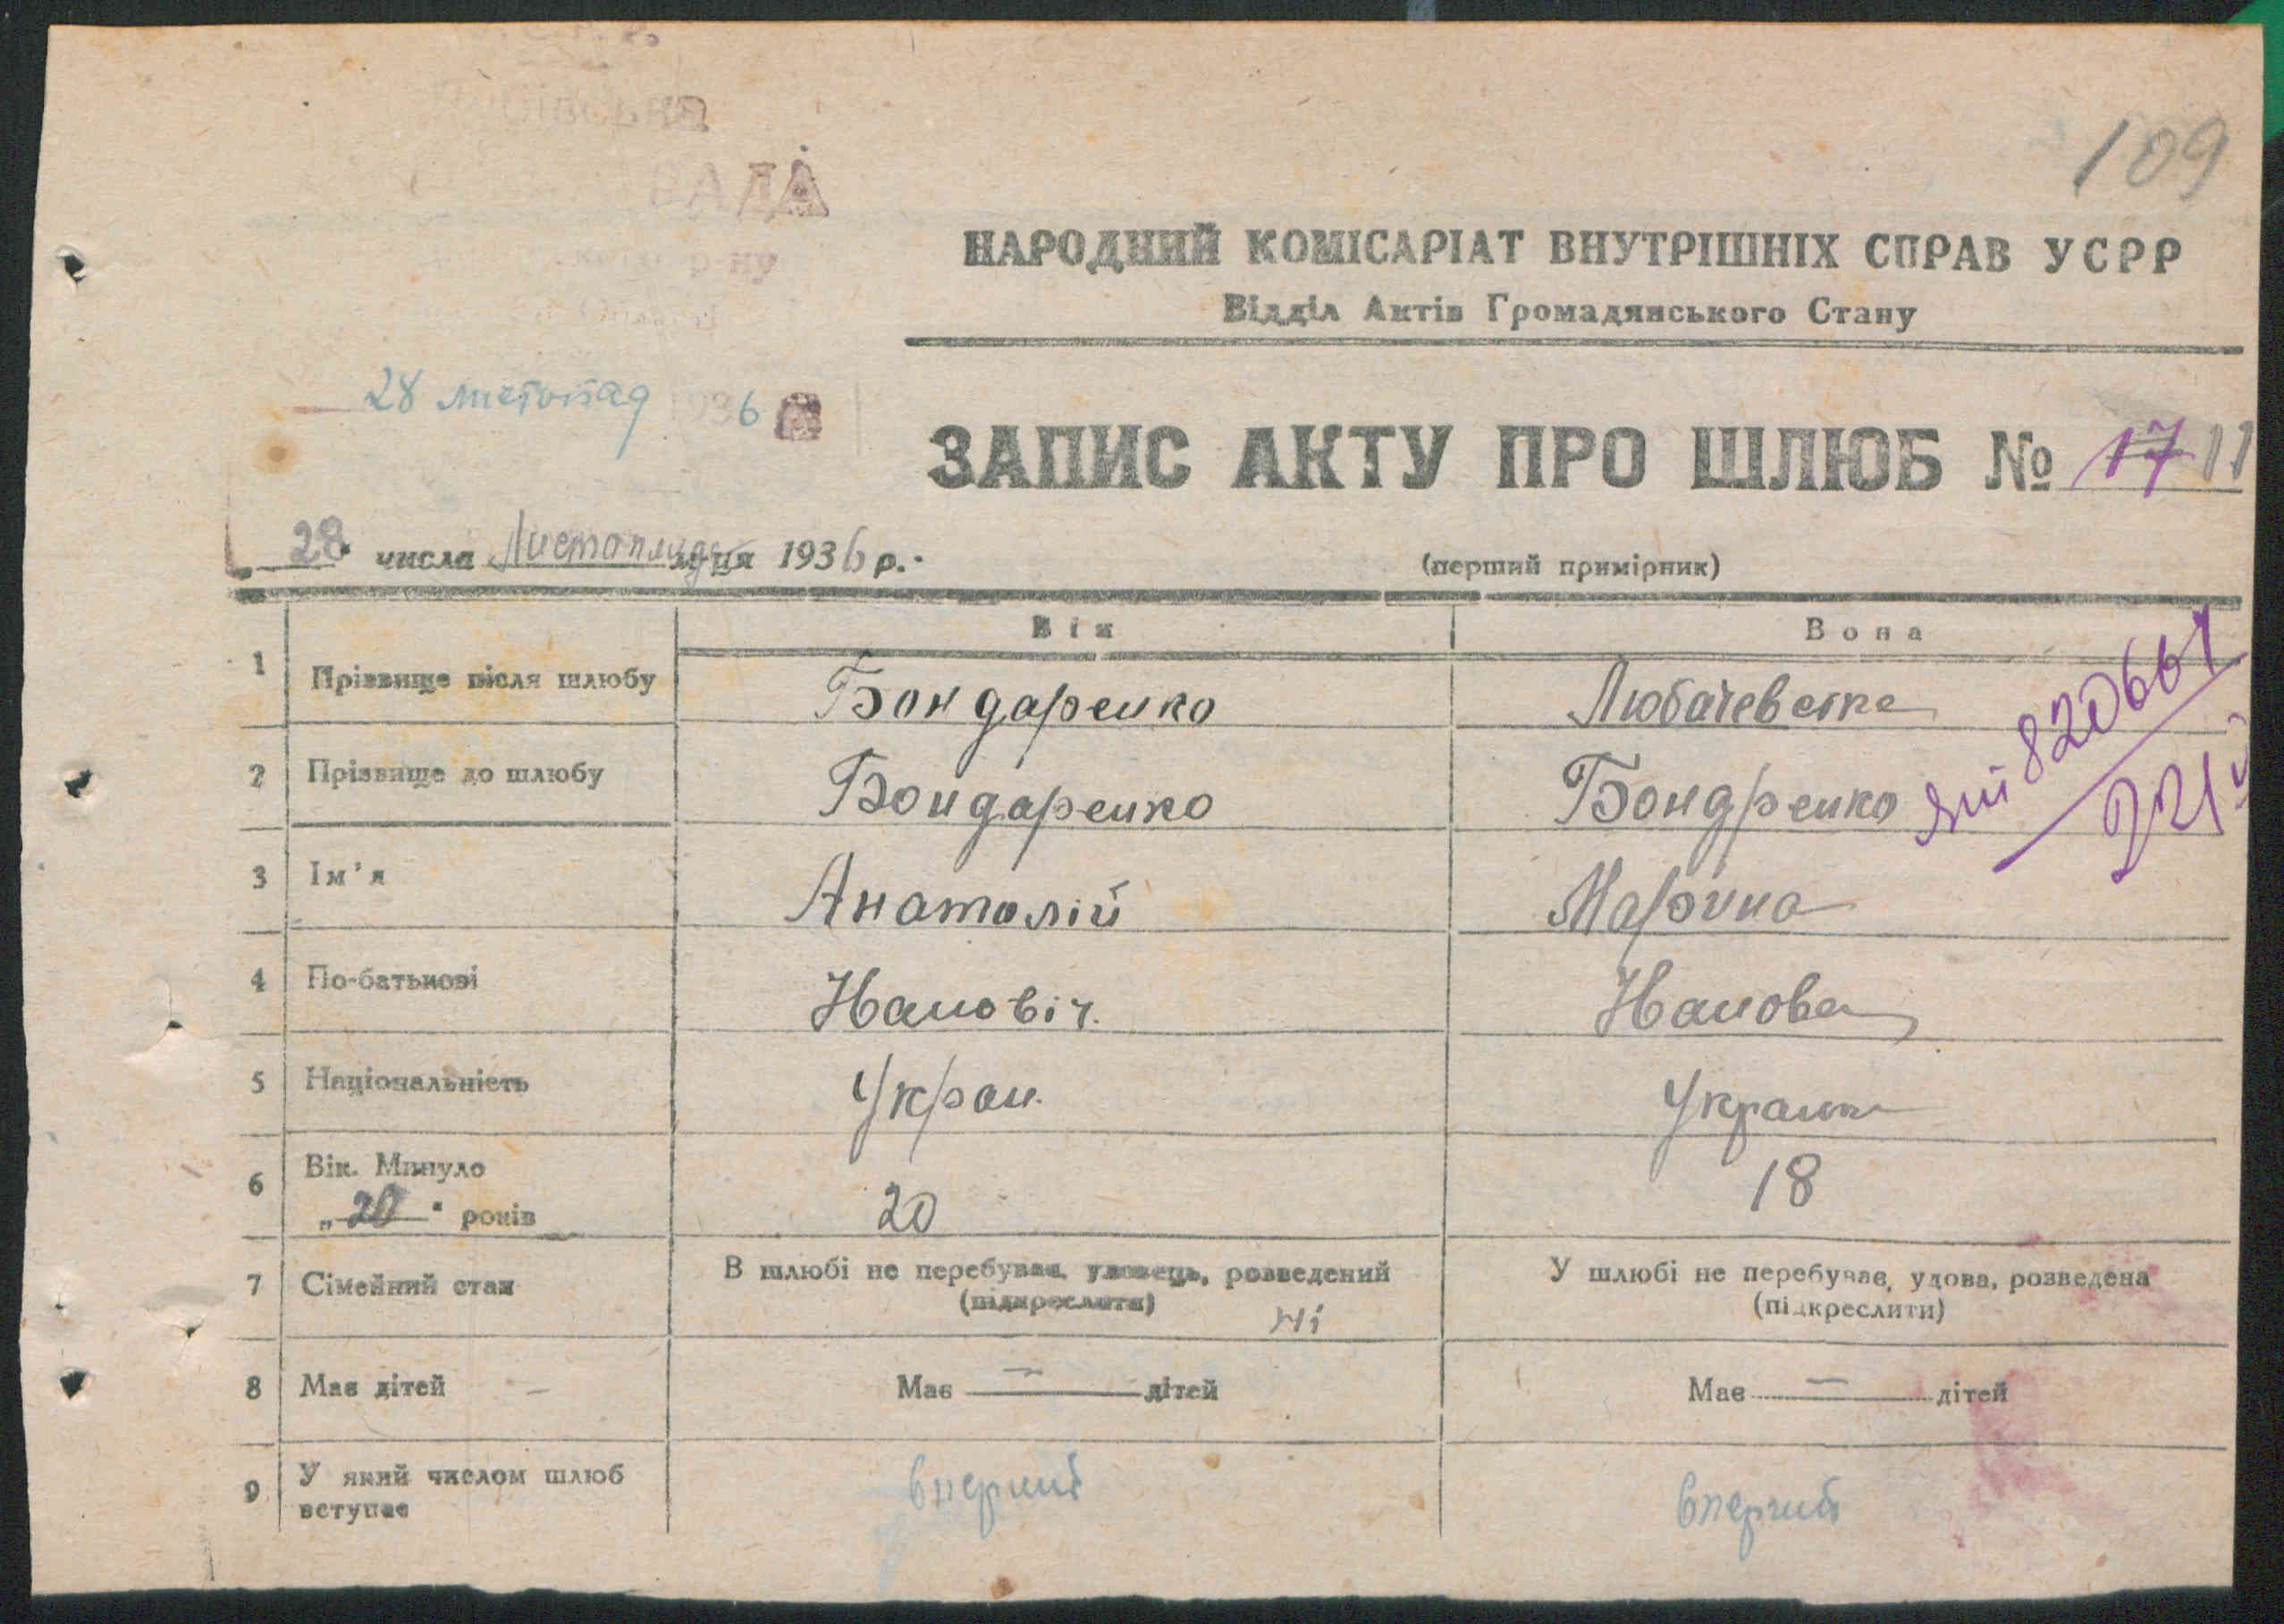 109
РАДА
р-ну
НАРОДНИЙ КОМІСАРІАТ ВНУТРІШНІХ СПРАВ УСРР
Відділ Актів Громадянського Стану
28 листопад 1936
ЗАПИС АКТУ ПРО ШЛЮБ № 17 11
28 числа Листопада м-ця 1936 р.
(перший примірник)
Він Вона
1 Прізвище після шлюбу Бондаренко Любачевска
820667
2 Прізвище до шлюбу Бондаренко Бондренко
221
3 Ім'я Анатолій Марина
4 По-батькові Ивановіч. Иванова
5 Національність Украи. Украинк
6 Вік. Минуло
„20" років 20 18
7 Сімейний стан В шлюбі не перебував, удовець, розведений У шлюбі не перебуває, удова, розведена
(підкреслити) ні (підкреслити)
8 Має дітей – Має — дітей Має — дітей
9 У який числом шлюб вперший вперший
вступає